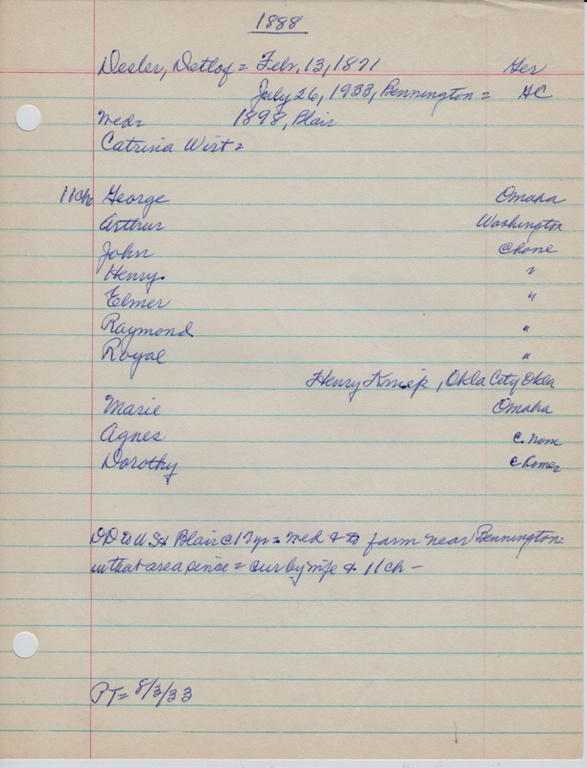 1888
Desler, Detlof = Febr. 13, 1871 Ger
July 26, 1933, Bennington = HC
Med= 1898, Blair
Catrina Wirt =
11ch George Omaha
Arthur Washington
John @home
Henry "
Elmer "
Raymond "
Royal "
Henry Kniep, Okla City Okla
Marie Omaha
Agnes @ home
Dorothy @ home
DD to U S & Blair @ 17 yr = med & to farm near Bennington =
in that area since = sur by wife & 11 ch —
PT = 8/3/33